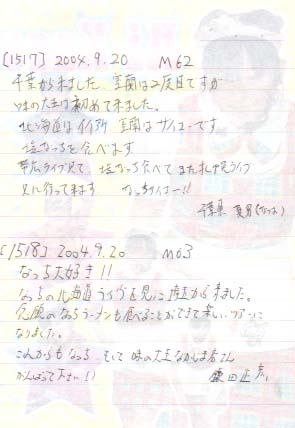 [1517] 2004.9.20 M62
千葉から来ました。室蘭は2度目ですが
味の大王は初めて来ました。
北海道はイイ所 室蘭はサイコーです
塩なっちを食べます
帯広ライブ見て 塩なっち食べて また札幌ライブ
見に行って来ます なっちサイコー!!
千葉県
[1518] 2004.9.20 M63
なっち大好き!!
なっちの北海道ライヴを見に埼玉から来ました。
念願のなっちラーメンも食べることができて楽しいツアーに
なりました。
これからもなっち そして味の王なかしま君さん
がんばって下さい!!
鎌田正